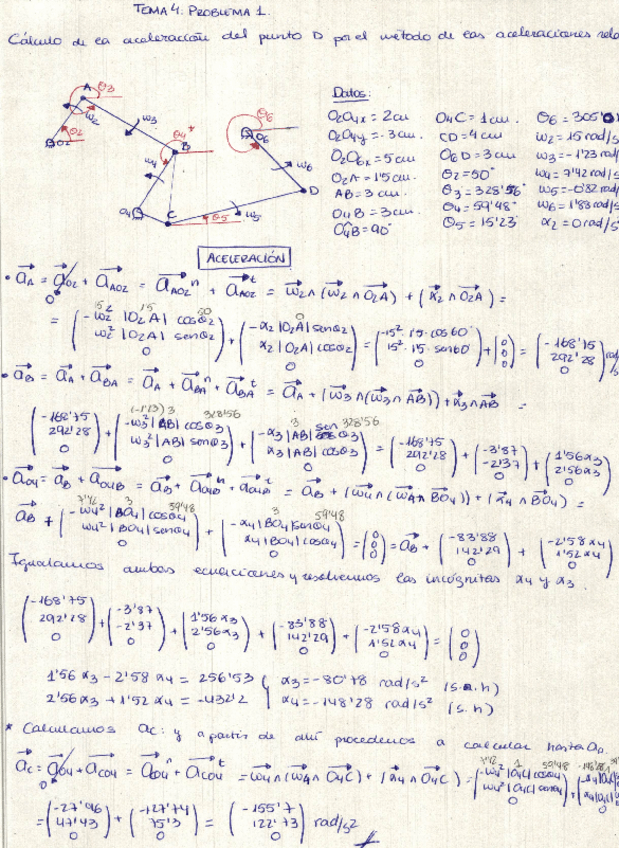 TEMA 4. PROBLEMA 1.
Cálculo de la aceleración del punto D por el método de las aceleraciones rela
Datos:
O₂O₄x = 2cm O₄C = 1cm. θ₆ = 305'01
O₂O₄y = -3cm. CD = 4cm ω₂ = 15 rad/s
O₂O₆x = 5cm O₆D = 3cm ω₃ = -1'23 rad/s
O₂A = 1'5cm θ₂ = 50° ω₄ = 7'42 rad/s
AB = 3cm θ₃ = 328'56° ω₅ = -0'82 rad/s
O₄B = 3cm θ₄ = 59'48° ω₆ = 1'83 rad/s
O₄B = 90° θ₅ = 15'23 α₂ = 0 rad/s
A θ₃ ω₂ θ₂ O₂ ω₃ θ₄* B ω₄ O₄ C θ₅ ω₅ θ₆ O₆ ω₆ D
ACELERACIÓN
• a_A = a_O2 + a_AO2 = a_AO2ⁿ + a_AO2ᵗ = ω₂∧(ω₂∧O₂A) + (α₂∧O₂A) =
= (-ω₂²|O₂A|cosθ₂ ω₂²|O₂A|senθ₂ 0) + (-α₂|O₂A|senθ₂ α₂|O₂A|cosθ₂ 0) = (-15²·15·cos60 15²·15·sen60 0) + (0 0 0) = (-168'75 292'28 0) rad/s
• a_B = a_A + a_BA = a_A + a_BAⁿ + a_BAᵗ = a_A + (ω₃∧(ω₃∧AB)) + α₃∧AB =
(-168'75 292'28 0) + (-ω₃²|AB|cosθ₃ ω₃²|AB|senθ₃ 0) + (-α₃|AB|senθ₃ α₃|AB|cosθ₃ 0) = (-168'75 292'28 0) + (-3'87 -2'37 0) + (1'56α₃ 2'56α₃ 0)
• a_O4 = a_B + a_O4B = a_B + a_O4Bⁿ + a_O4Bᵗ = a_B + (ω₄∧(ω₄∧BO₄)) + (α₄∧BO₄) =
a_B + (-ω₄²|BO₄|cosθ₄ -ω₄²|BO₄|senθ₄ 0) + (-α₄|BO₄|senθ₄ α₄|BO₄|cosθ₄ 0) = (0 0 0) = a_B + (-83'88 142'29 0) + (-2'58α₄ 1'52α₄ 0)
Igualamos ambas ecuaciones y resolvemos las incógnitas α₄ y α₃.
(-168'75 292'28 0) + (-3'87 -2'37 0) + (1'56α₃ 2'56α₃ 0) + (-83'88 142'29 0) + (-2'58α₄ 1'52α₄ 0) = (0 0 0)
1'56 α₃ - 2'58 α₄ = 256'53 { α₃ = -80'78 rad/s² (s.a.h)
2'56 α₃ + 1'52 α₄ = -432'2 α₄ = -148'28 rad/s² (s.h)
* Calculamos a_C: y a partir de ahí procedemos a calcular hasta a_D.
a_C = a_O4 + a_CO4 = a_CO4ⁿ + a_CO4ᵗ = ω₄∧(ω₄∧O₄C) + (α₄∧O₄C) = (-ω₄²|O₄C|cosθ₄ ω₄²|O₄C|senθ₄ 0) +
= (-27'96 47'43 0) + (-127'74 75'3 0) = (-155'7 122'73 0) rad/s²